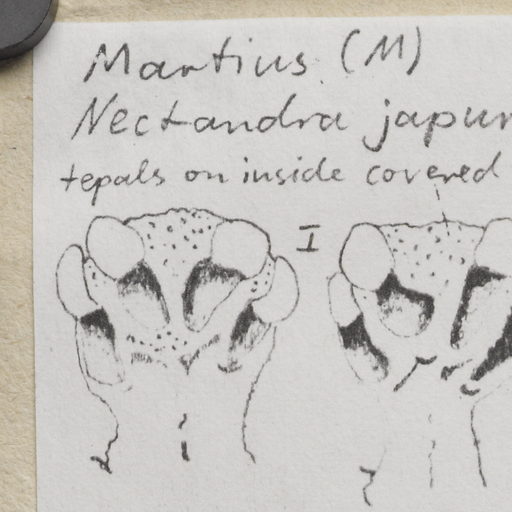 Martius. (M)
Nectandra japur
tepals on inside covered
I